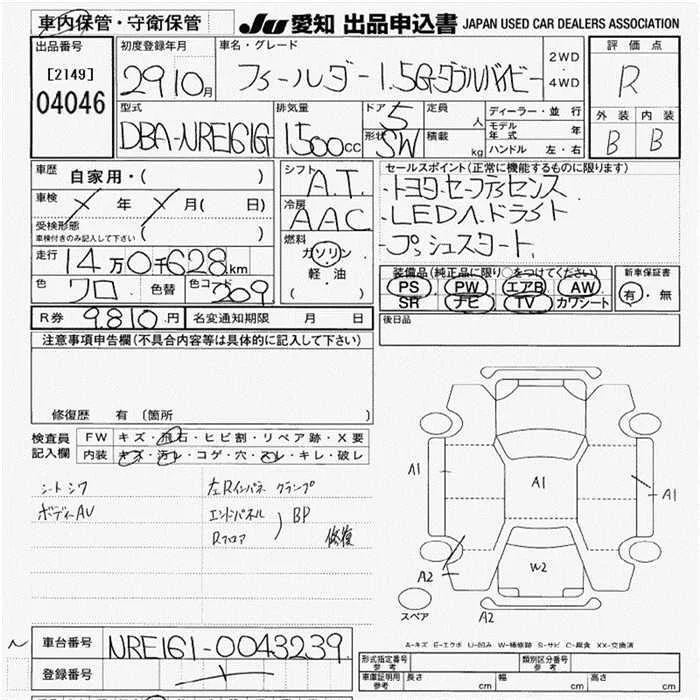 車内保管・守衛保管
JU 愛知 出品申込書 JAPAN USED CAR DEALERS ASSOCIATION
出品番号
[2149]
04046
初度登録年月
29 10月
車名・グレード
フィールダー 1.5G・ダブルバイビー
2WD
・
4WD
評価点
R
外装 内装
B B
型式
DBA-NRE161G
排気量
1500cc
ドア 5
形状 SW
定員 人
積載 kg
ディーラー・並行
モデル年式 年
ハンドル 左・右
車歴 自家用・( )
車検 年 月( 日)
受検形態
車検付きのみ記入して下さい ( )
走行 14万0千628km
色 クロ 色替 色コード 209
シフト A.T.
冷房 AAC
燃料
ガソリン
軽・油
( )
セールスポイント(正常に機能するものに限ります)
・トヨタセーフティセンス
・LEDハ.ドライト
・プッシュスタート.
装備品(純正品に限り○をつけてください)
PS PW エアB AW
SR ナビ TV カワシート
新車保証書
有・無
R券 9.810円 名変通知期限 月 日
後日品
注意事項申告欄(不具合内容等は具体的に記入して下さい)
修復歴 有 〔箇所 〕
検査員
記入欄
FW キズ・飛石・ヒビ割・リペア跡・X要
内装 キズ・汚レ・コゲ・穴・スレ・キレ・破レ
シートシワ
ボディーAU
左Rインパネ クランプ
エンドパネル
Rフロア
BP
修復
A1
A1
A1
A2
W2
A2
スペア
A-キズ E-エクボ U-凹み W-補修跡 S-サビ C-腐食 XX-交換済
車台番号 NRE161-0043239
登録番号
形式指定番号
参考
類別区分番号
参考
車庫証明用
参考
長さ cm 幅 cm 高さ cm